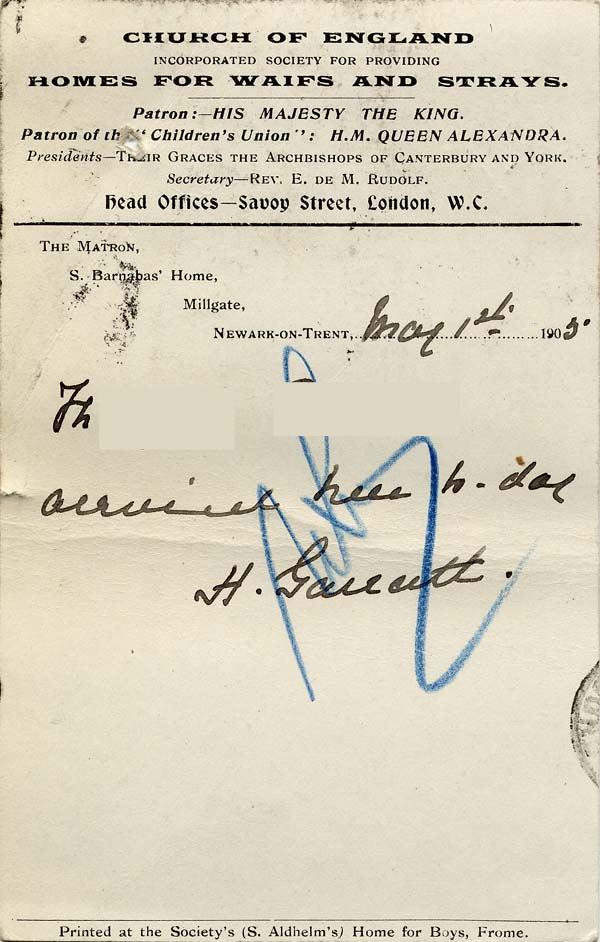 CHURCH OF ENGLAND
INCORPORATED SOCIETY FOR PROVIDING
HOMES FOR WAIFS AND STRAYS.
Patron:—HIS MAJESTY THE KING.
Patron of the "Children's Union": H.M. QUEEN ALEXANDRA.
Presidents—THEIR GRACES THE ARCHBISHOPS OF CANTERBURY AND YORK.
Secretary—REV. E. DE M. RUDOLF.
Head Offices—Savoy Street, London, W.C.
THE MATRON,
S. Barnabas' Home,
Millgate,
NEWARK-ON-TRENT, May 1st 1905
Th
arrived here to-day
H. Garratt.
Printed at the Society's (S. Aldhelm's) Home for Boys, Frome.